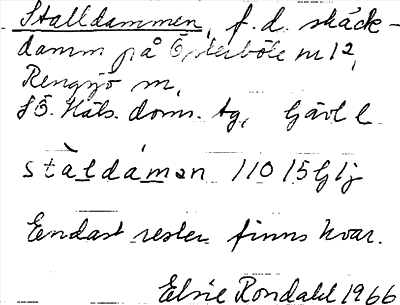 Stalldammen, f.d. skäck-
damm på Österböle nr 12,
Rengsjö sn,
SÖ. Häls. doms. tg, Gävl. l.
stàldámen 11015 Glj
Endast rester finns kvar.
Elsie Rondahl 1966